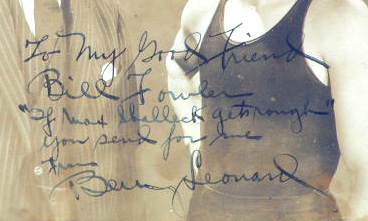 To My Good Friend
Bill Fowler
"If Max Halleck gets rough"
you send for me
from
Benny Leonard